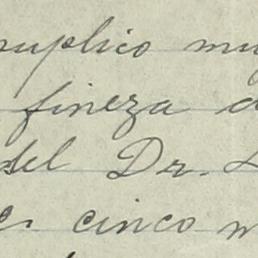 suplico mu
fineza d
del Dr.
cinco m